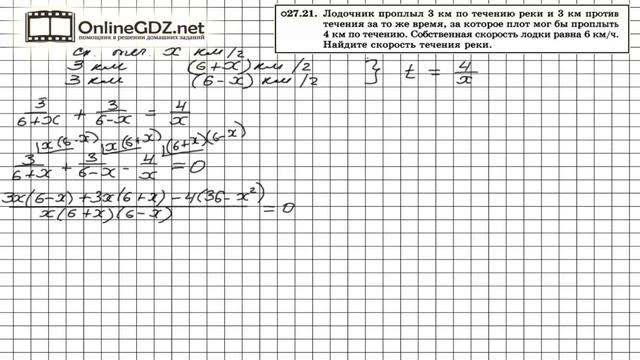 OnlineGDZ.net
помощник в решении домашних заданий
О27.21. Лодочник проплыл 3 км по течению реки и 3 км против
течения за то же время, за которое плот мог бы проплыть
4 км по течению. Собственная скорость лодки равна 6 км/ч.
Найдите скорость течения реки.
Ск. теч. x км/ч
3 км (6+x) км/ч
3 км (6-x) км/ч } t = 4/x
3/(6+x) + 3/(6-x) = 4/x
|x(6-x) |x(6+x) |(6+x)(6-x)
3/(6+x) + 3/(6-x) - 4/x = 0
(3x(6-x) + 3x(6+x) - 4(36-x²))/(x(6+x)(6-x)) = 0